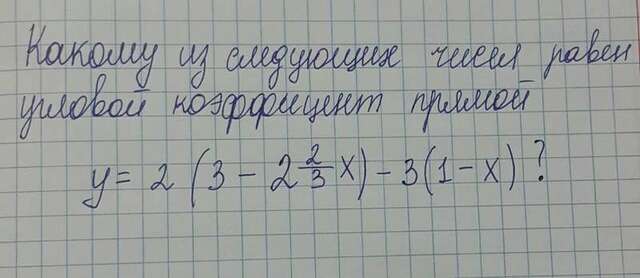 Какому из следующих чисел равен
угловой коэффициент прямой
y = 2 (3 - 2 2/3 x) - 3(1 - x) ?